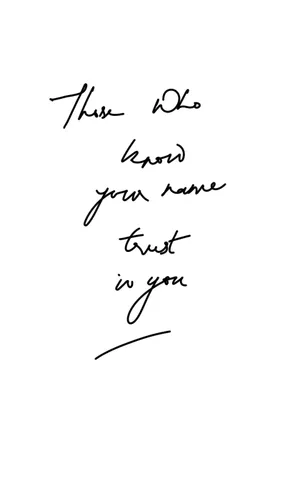 Those who
know
your name
trust
in you